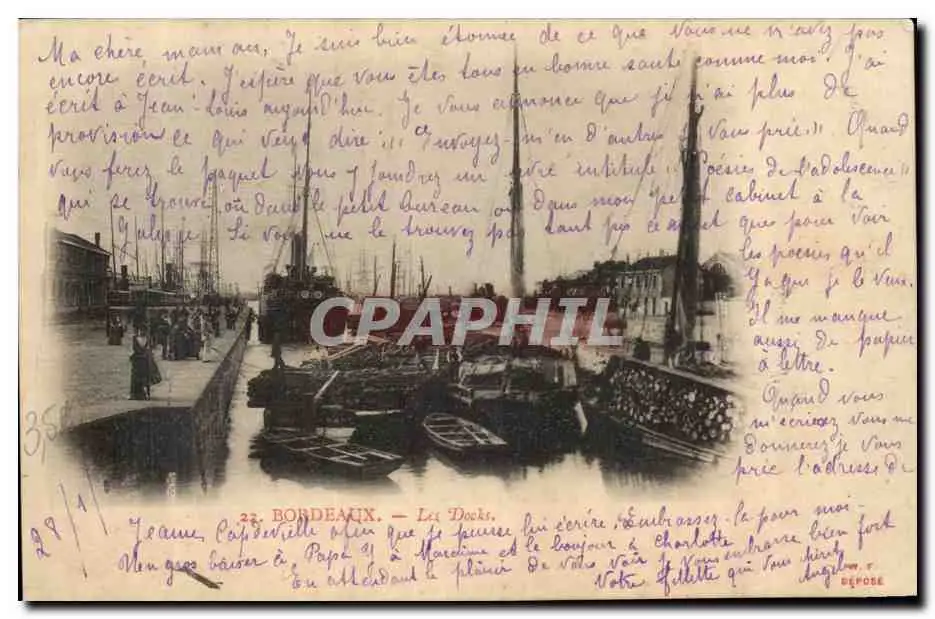 Ma chère maman, Je suis bien étonnée de ce que Vous ne m'avez pas
encore écrit. J'espère que vous êtes tous en bonne santé comme moi. J'ai
écrit à Jean-Louis aujourd'hui. Je vous annonce que je n'ai plus de
provision ce qui veut dire :"Envoyez-m'en d'autres Vous prie." Quand
vous ferez le paquet vous y joindrez un livre intitulé "Poésies de l'adolescence"
qui se trouve où dans le petit bureau ou dans mon petit cabinet à la
Si vous ne le trouvez pas tant pis ce n'est que pour voir
les poésies qu'il
y a que je le veux.
Il me manque
aussi du papier
à lettre.
Quand vous
m'écrirez vous me
donnerez je vous
prie l'adresse de
Jeanne Capdeville afin que je puisse lui écrire. Embrassez-la pour moi
Un gros baiser à Papa et à Marraine et le bonjour à Charlotte
En attendant le plaisir de vous voir je vous embrasse bien fort
Votre fillette qui vous chérit
Angèle
28/1
35
22. BORDEAUX. — Les Docks.
CPAPHIL
DÉPOSÉ